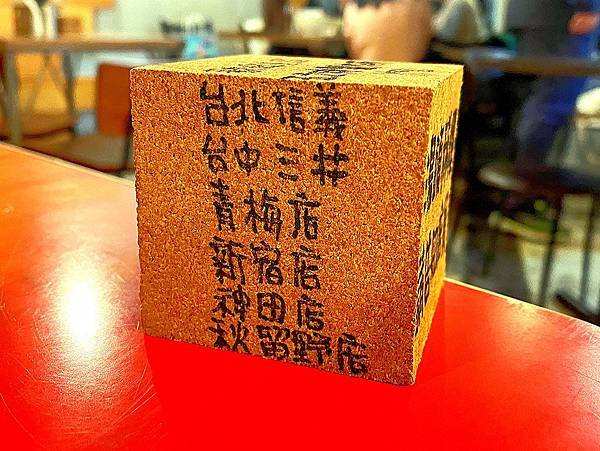 台北信義
台中三井
青梅店
新宿店
神田店
秋留野店